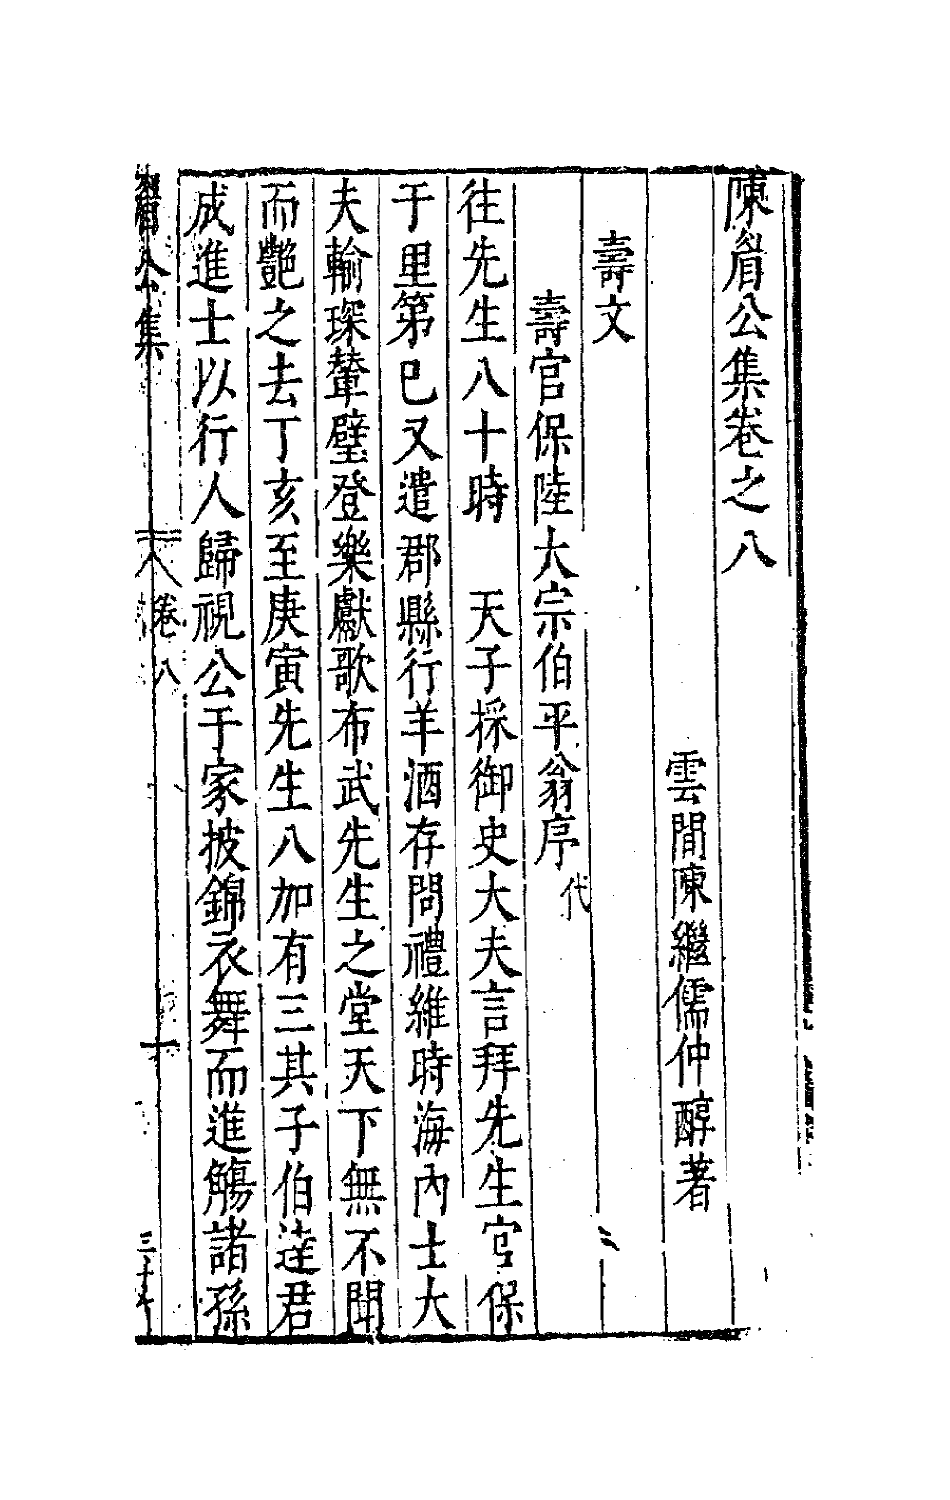 陳眉公集卷之八
雲間陳繼儒仲醇著
壽文
壽官保陸大宗伯平翁序代
往先生八十時　天子採御史大夫言拜先生官保
于里第已又遣郡縣行羊酒存問禮維時海內士大
夫輸琛輦璧登樂獻歌布武先生之堂天下無不聞
而艷之去丁亥至庚寅先生八加有三其子伯達君
成進士以行人歸視公于家披錦衣舞而進觴諸孫
眉公集
卷八
一